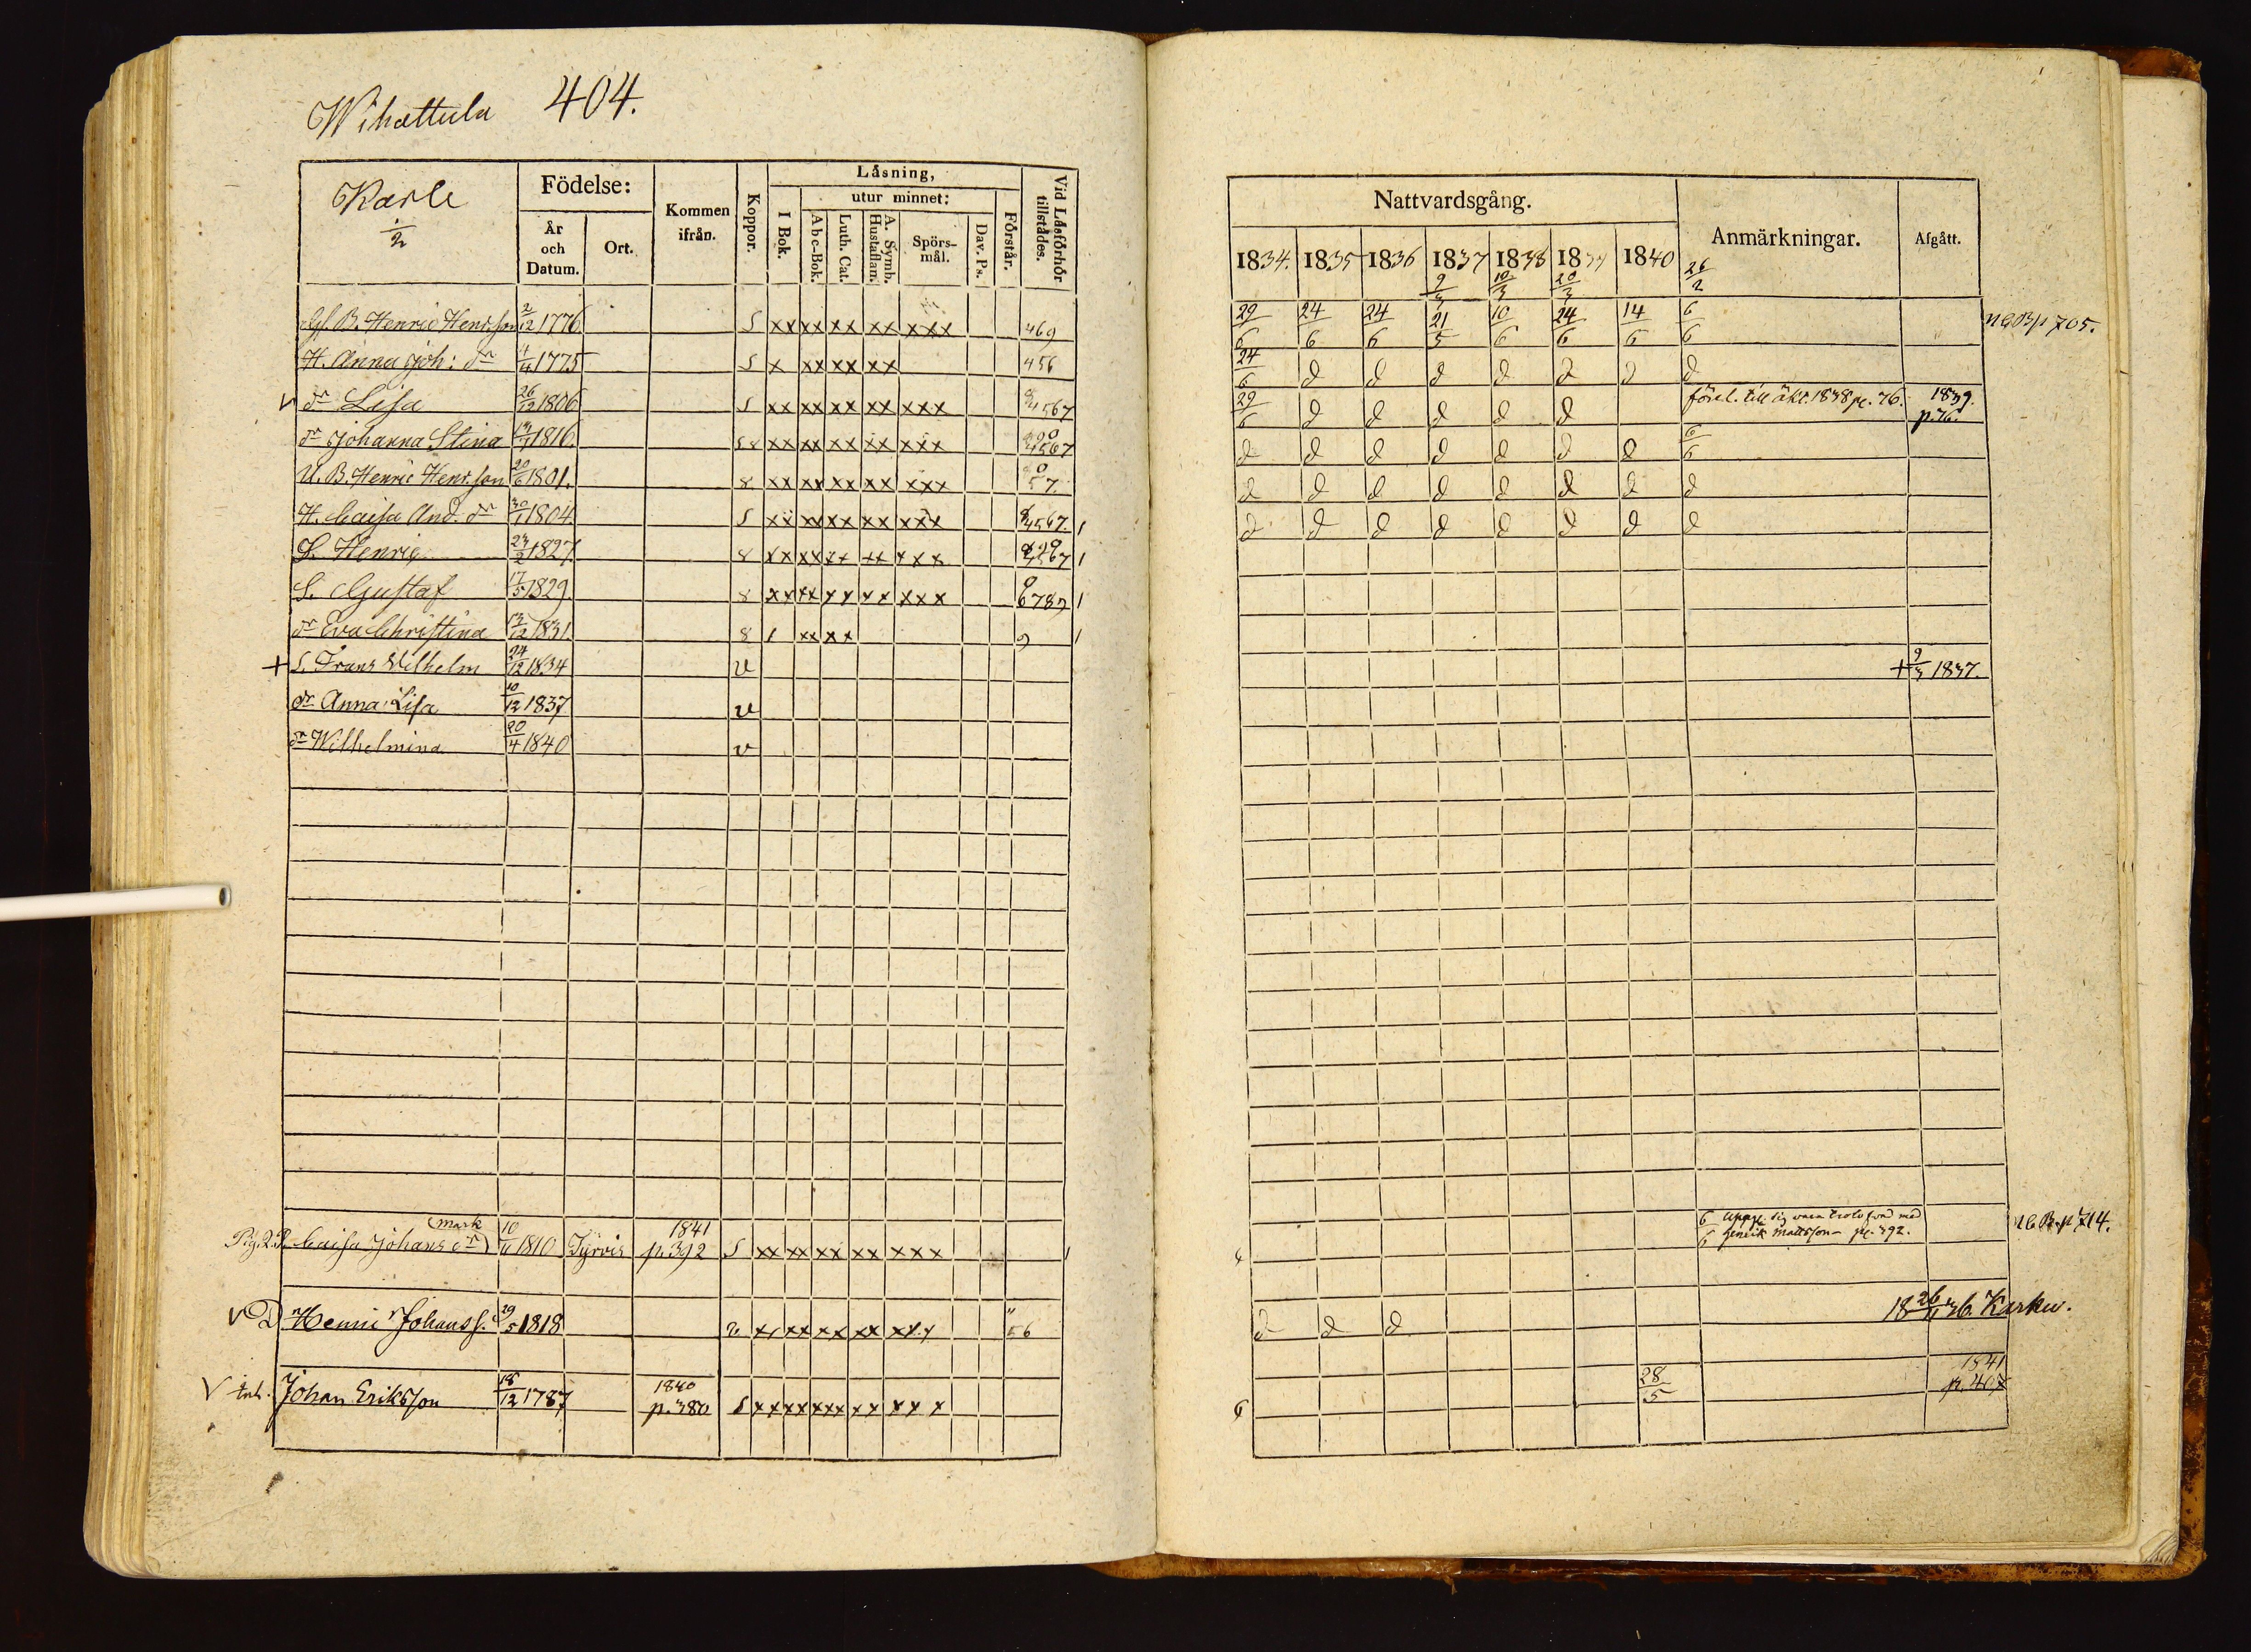 Wihattula 404.
Karle
1/2
Födelse:
År
och
Datum.
Ort.
Kommen
ifrån.
Koppor.
Låsning,
I Bok.
utur minnet:
Abc-Bok.
Luth. Cat.
A. Symb.
Hustaflan.
Spörs-
mål.
Dav. Ps.
Förstår.
Vid Låsförhör
tillstådes.
Gl. B. Henric Henr.son 2/12 1776 S xx xx xx xx xxx 469
H. Anna Joh: dr 4/4 1775 S x xx xx xx 456
v dr Lisa 26/12 1806 S xx xx xx xx xxx 4567
dr Johanna Stina 1816 xx xx xx xx xxx 4567
U. B. Henric Henr.son 20/6 1801. 8 xx xx xx xx xxx 57.
H. Caisa And. dr 30/1 1804 S xx xx xx xx xxx 4567.
S. Henric 23/2 1827 8 xx xx xx xx xxx
S. Gustaf 17/5 1829 8 xx xx xx xx xxx 6789
dr Eva Christina 13/12 1831 8 xx xx 9
+ S. Frans Wilhelm 24/12 1834 v
dr Anna Lisa 10/12 1837 v
dr Wilhelmina 20/4 1840 v
mark
Pig. Caisa Johans dr 1810 Tyrvis 1841 p. 392 S xx xx xx xx xxx
v D Henric Johanss. 29/5 1818 v xx xx xx xx xxx 56
v Inh. Johan Eriksson 18/12 1787 1840 p. 380 S xx xx xxx xx xxx
Nattvardsgång.
Anmärkningar.
Afgått.
1834. 1835 1836 1837 1838 1839 1840
9/3 10/3 20/3 26/2
29/6 24/6 24/6 21/5 10/6 24/6 14/6 6/6 p 705.
24/6 d d d d d d d
29/6 d d d d d förel. till äkt. 1838 p. 76. 1839. p. 76.
d d d d d d d 6/6
d d d d d d d d
d d d d d d d d
+ 9/3 1837.
6/6 sig med
Henrik Mattsson p. 392.
p 714.
d d d 18 26/11 36 Karku.
28/5 1841 p. 407